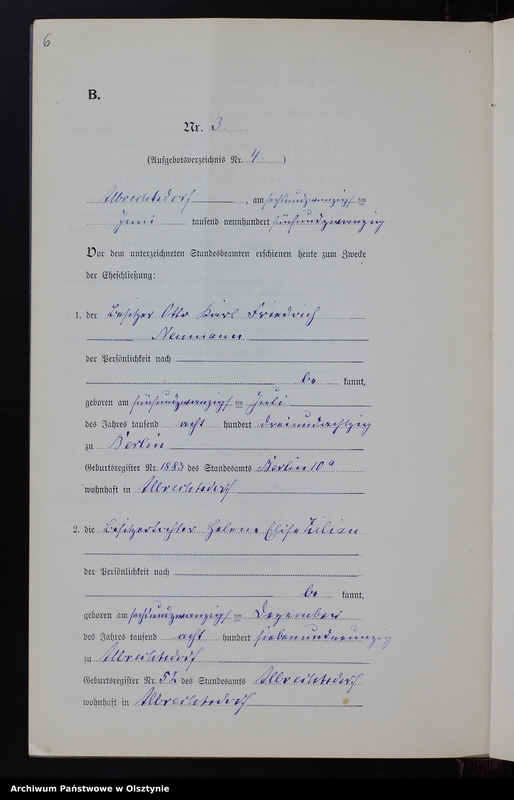 6
B.
Nr. 3
(Aufgebotsverzeichnis Nr. 4.)
Albrechtsdorf, am sechsundzwanzigsten
Juni tausend neunhundert fünfundzwanzig.
Vor dem unterzeichneten Standesbeamten erschienen heute zum Zwecke
der Eheschließung:
1. der Besitzer Otto Karl Friedrich
Neumann
der Persönlichkeit nach
be kannt,
geboren am fünfundzwanzigsten Juli
des Jahres tausend acht hundert dreiundachtzig
zu Berlin
Geburtsregister Nr. 1883 des Standesamts Berlin 10a
wohnhaft in Albrechtsdorf
2. die Besitzertochter Helene Elise Kilian
der Persönlichkeit nach
be kannt,
geboren am sechsundzwanzigsten Dezember
des Jahres tausend acht hundert siebenundneunzig
zu Albrechtsdorf
Geburtsregister Nr. 52 des Standesamts Albrechtsdorf
wohnhaft in Albrechtsdorf
Archiwum Państwowe w Olsztynie